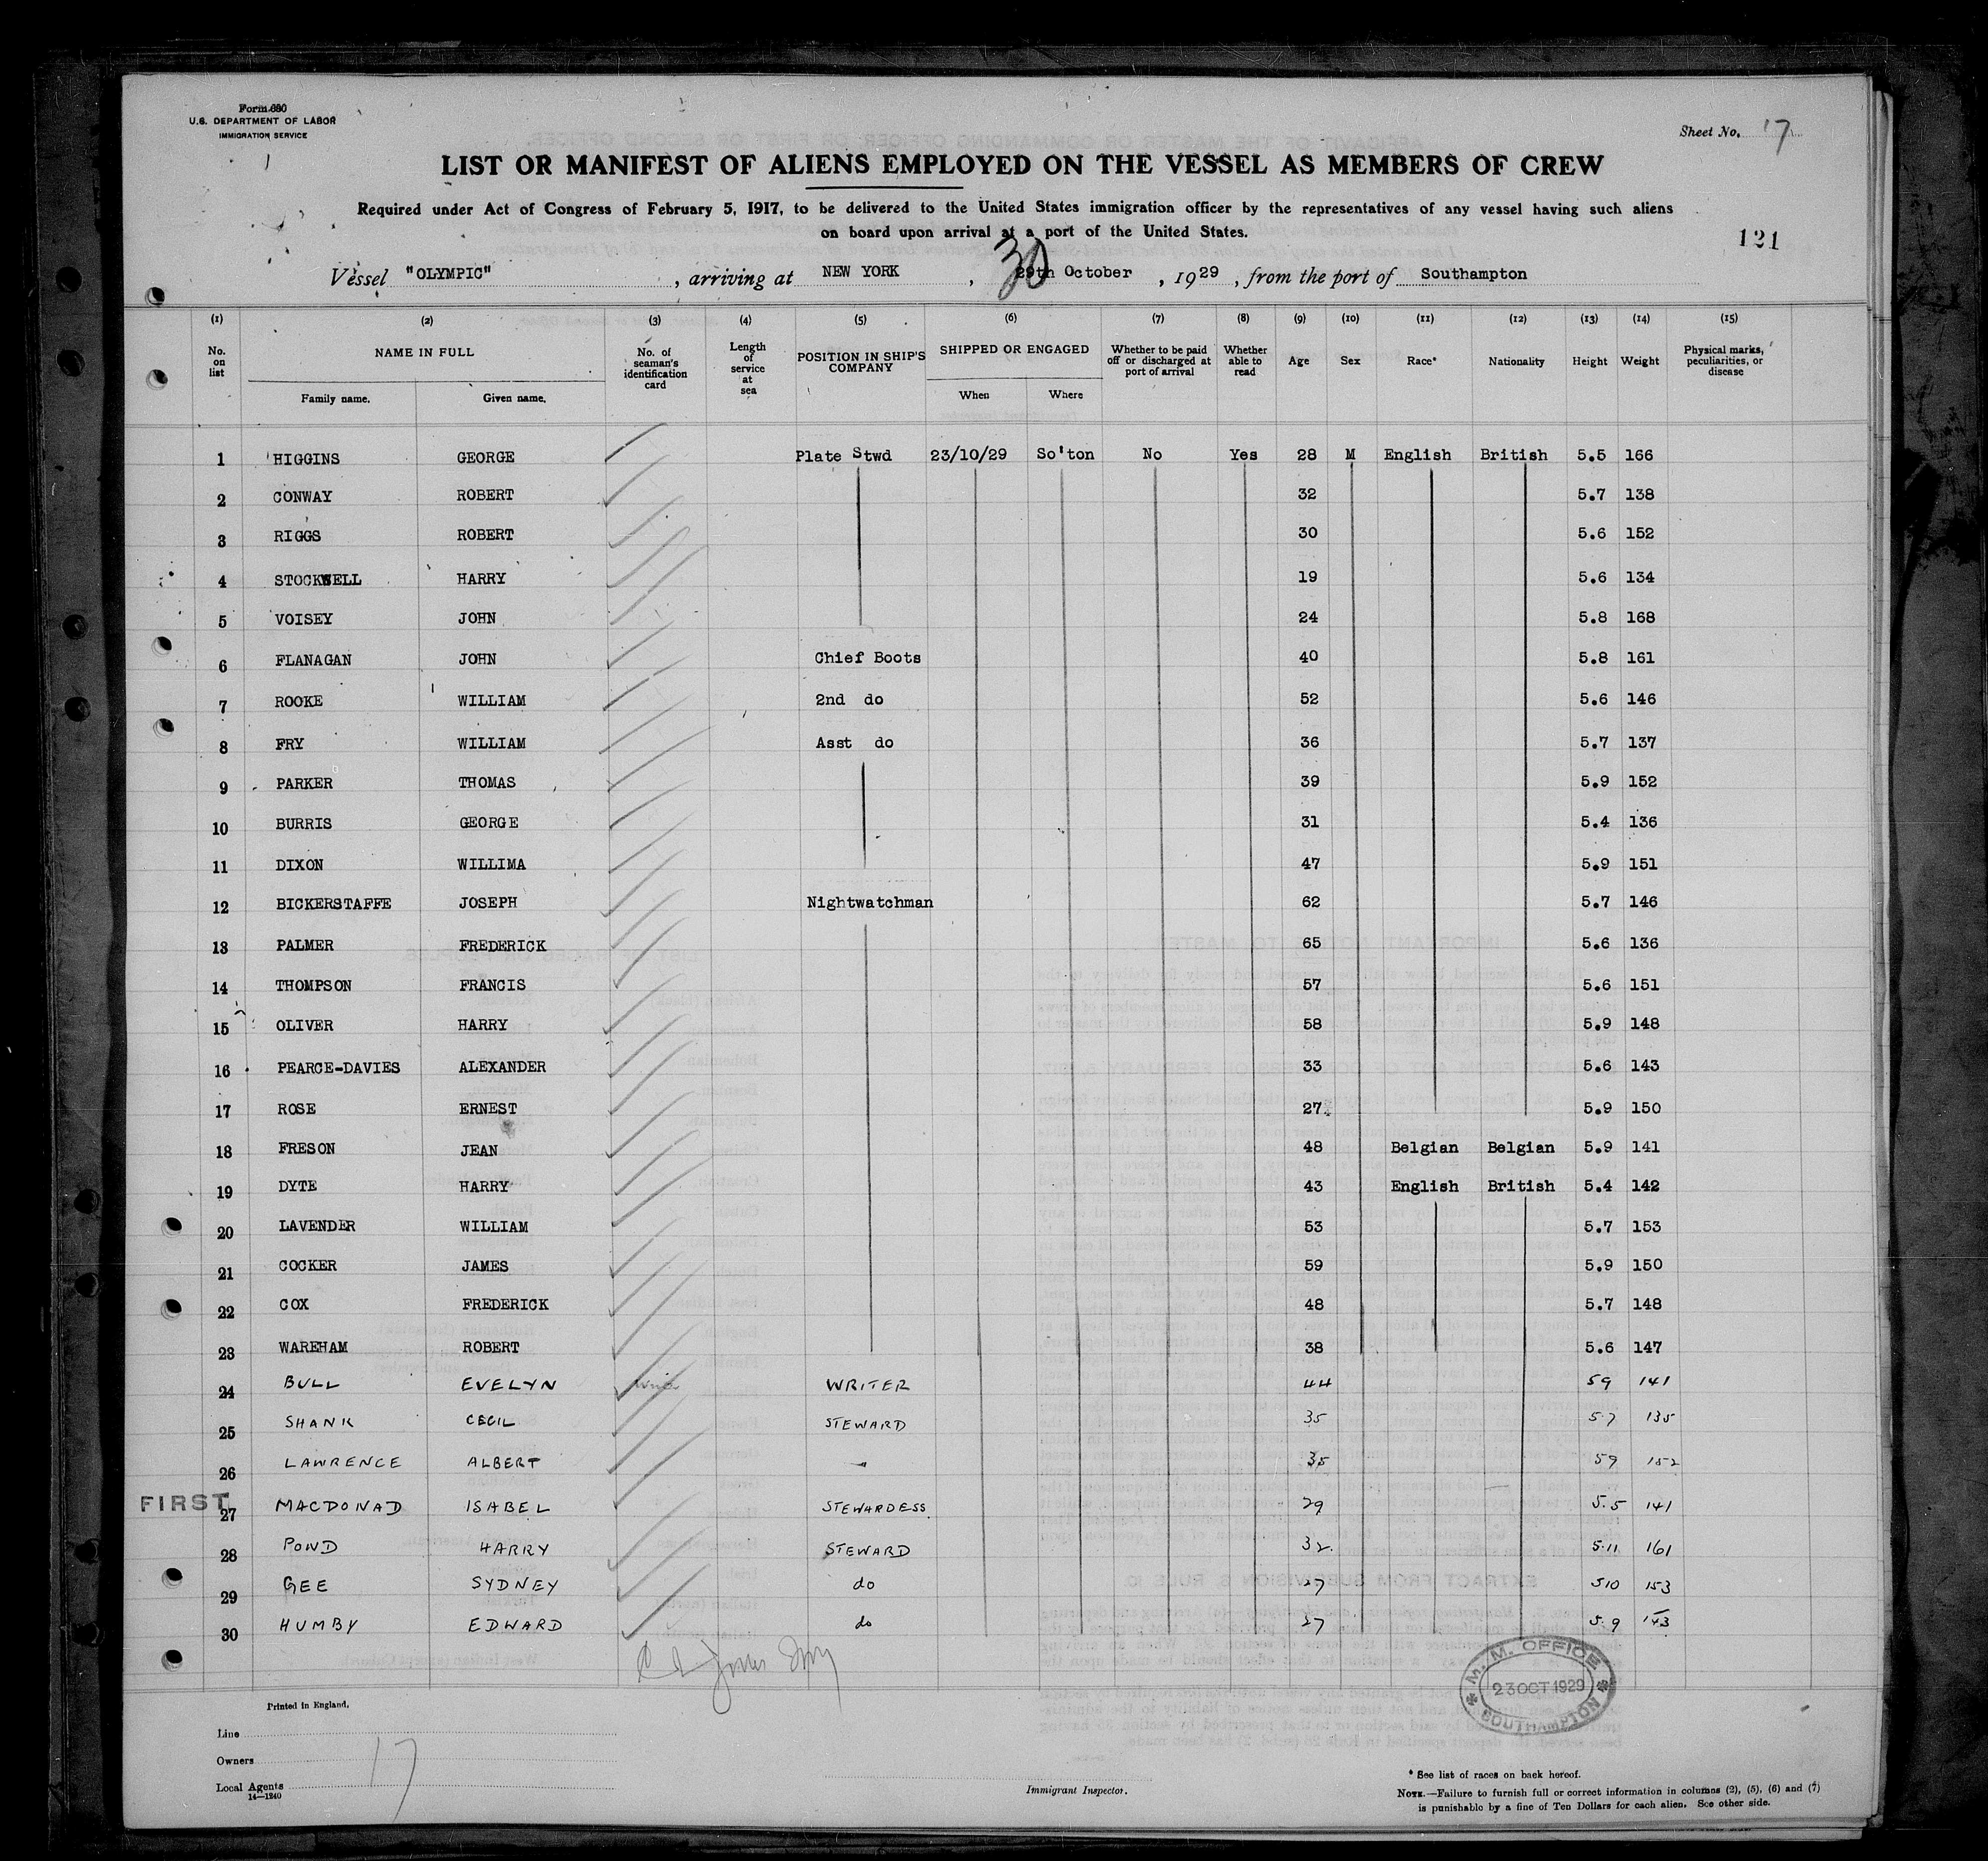 Form 680
U.S. DEPARTMENT OF LABOR
IMMIGRATION SERVICE
Sheet No. 17
LIST OR MANIFEST OF ALIENS EMPLOYED ON THE VESSEL AS MEMBERS OF CREW
Required under Act of Congress of February 5, 1917, to be delivered to the United States immigration officer by the representatives of any vessel having such aliens
on board upon arrival at a port of the United States.
121
Vessel "OLYMPIC", arriving at NEW YORK, 30 29th October, 1929, from the port of Southampton
(1) (2) (3) (4) (5) (6) (7) (8) (9) (10) (11) (12) (13) (14) (15)
No. on list NAME IN FULL Family name. Given name. No. of seaman's identification card Length of service at sea POSITION IN SHIP'S COMPANY SHIPPED OR ENGAGED When Where Whether to be paid off or discharged at port of arrival Whether able to read Age Sex Race* Nationality Height Weight Physical marks, peculiarities, or disease
1 HIGGINS GEORGE Plate Stwd 23/10/29 So'ton No Yes 28 M English British 5.5 166
2 CONWAY ROBERT 32 5.7 138
3 RIGGS ROBERT 30 5.6 152
4 STOCKWELL HARRY 19 5.6 134
5 VOISEY JOHN 24 5.8 168
6 FLANAGAN JOHN Chief Boots 40 5.8 161
7 ROOKE WILLIAM 2nd do 52 5.6 146
8 FRY WILLIAM Asst do 36 5.7 137
9 PARKER THOMAS 39 5.9 152
10 BURRIS GEORGE 31 5.4 136
11 DIXON WILLIMA 47 5.9 151
12 BICKERSTAFFE JOSEPH Nightwatchman 62 5.7 146
13 PALMER FREDERICK 65 5.6 136
14 THOMPSON FRANCIS 57 5.6 151
15 OLIVER HARRY 58 5.9 148
16 PEARCE-DAVIES ALEXANDER 33 5.6 143
17 ROSE ERNEST 27 5.9 150
18 FRESON JEAN 48 Belgian Belgian 5.9 141
19 DYTE HARRY 43 English British 5.4 142
20 LAVENDER WILLIAM 53 5.7 153
21 COCKER JAMES 59 5.9 150
22 COX FREDERICK 48 5.7 148
23 WAREHAM ROBERT 38 5.6 147
24 BULL EVELYN WRITER 44 59 141
25 SHANK CECIL STEWARD 35 5.7 135
26 LAWRENCE ALBERT 35 59 152
FIRST 27 MACDONAD ISABEL STEWARDESS 29 5.5 141
28 POND HARRY STEWARD 32 5.11 161
29 GEE SYDNEY do 27 510 153
30 HUMBY EDWARD do 27 5.9 143
M. M. OFFICE
23 OCT 1929
SOUTHAMPTON
Printed in England.
Line
Owners
Local Agents
14—1240
17
Immigrant Inspector.
* See list of races on back hereof.
NOTE.—Failure to furnish full or correct information in columns (2), (5), (6) and (7)
is punishable by a fine of Ten Dollars for each alien. See other side.